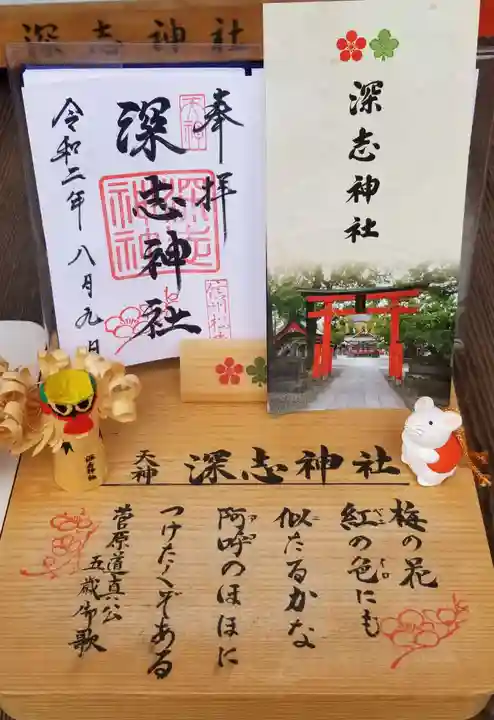 深志神社
奉拝
天神
深志神社
深志神社
令和二年八月九日
深志神社
天神 深志神社
梅の花
紅の色にも
似たるかな
阿呼のほほに
つけたくぞある
菅原道真公
五歳御歌